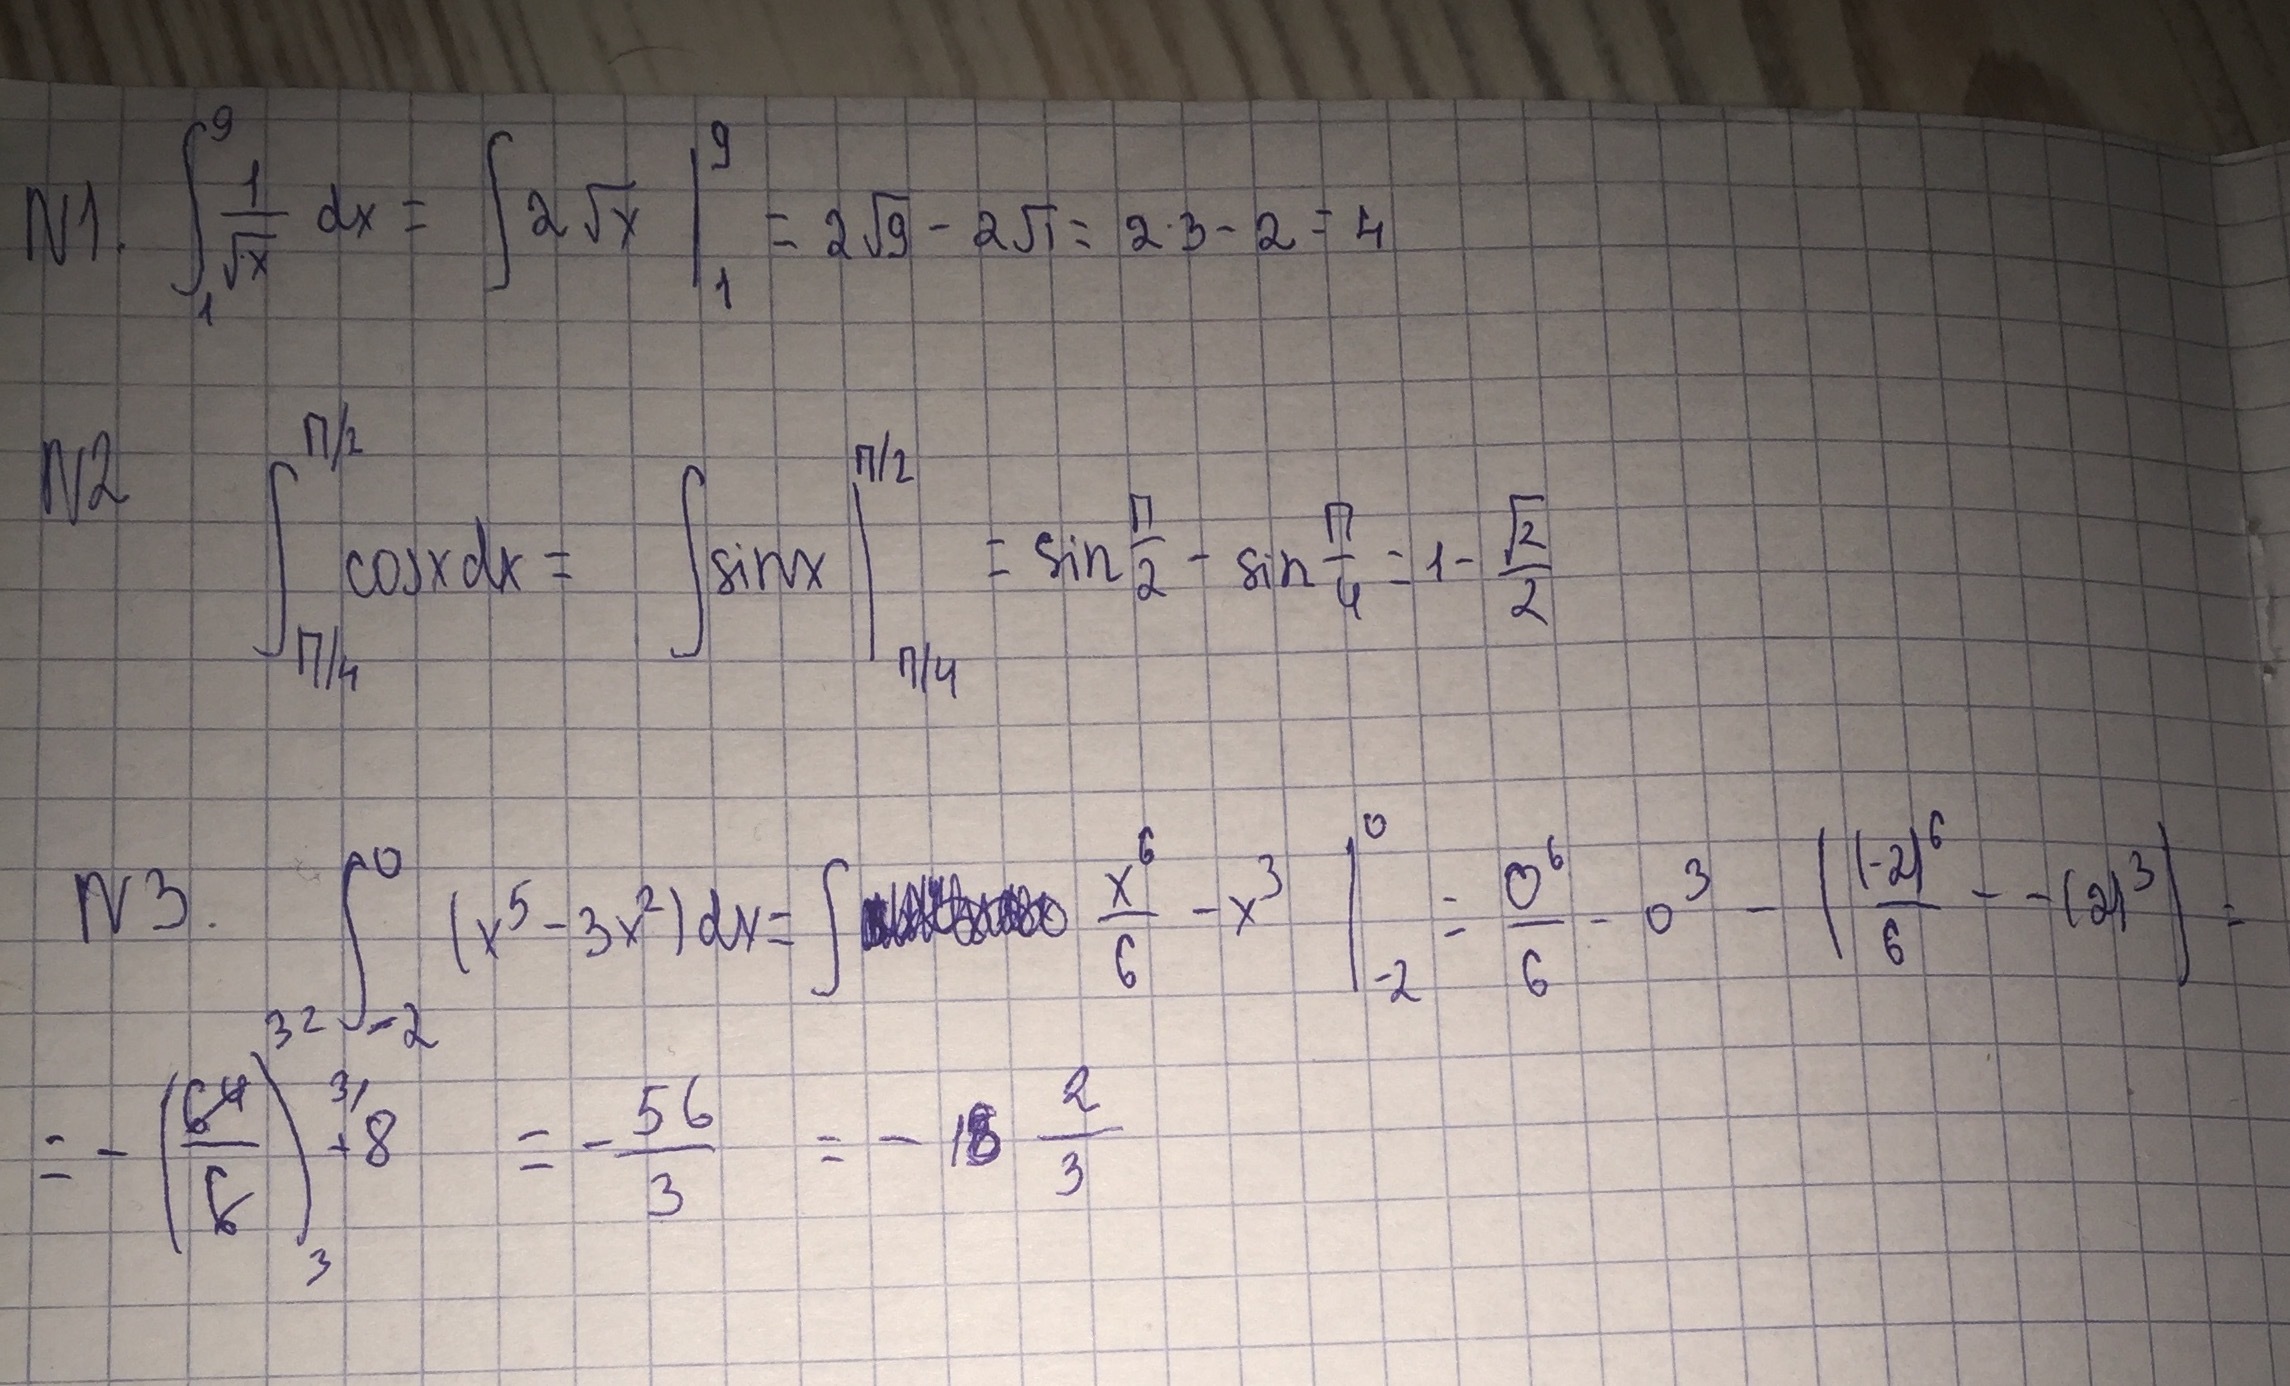 N1. ∫₁⁹ 1/√x dx = ∫ 2√x |₁⁹ = 2√9 - 2√1 = 2·3 - 2 = 4
N2 ∫_{π/4}^{π/2} cosxdx = ∫ sinx |_{π/4}^{π/2} = sin π/2 - sin π/4 = 1 - √2/2
N3. ∫_{-2}^{0} (x⁵ - 3x²) dx = ∫ x⁶/6 - x³ |_{-2}^{0} = 0⁶/6 - 0³ - ((-2)⁶/6 - -(2)³) =
= - (64/6) 32 3 3/ + 8 = - 56/3 = - 18 2/3